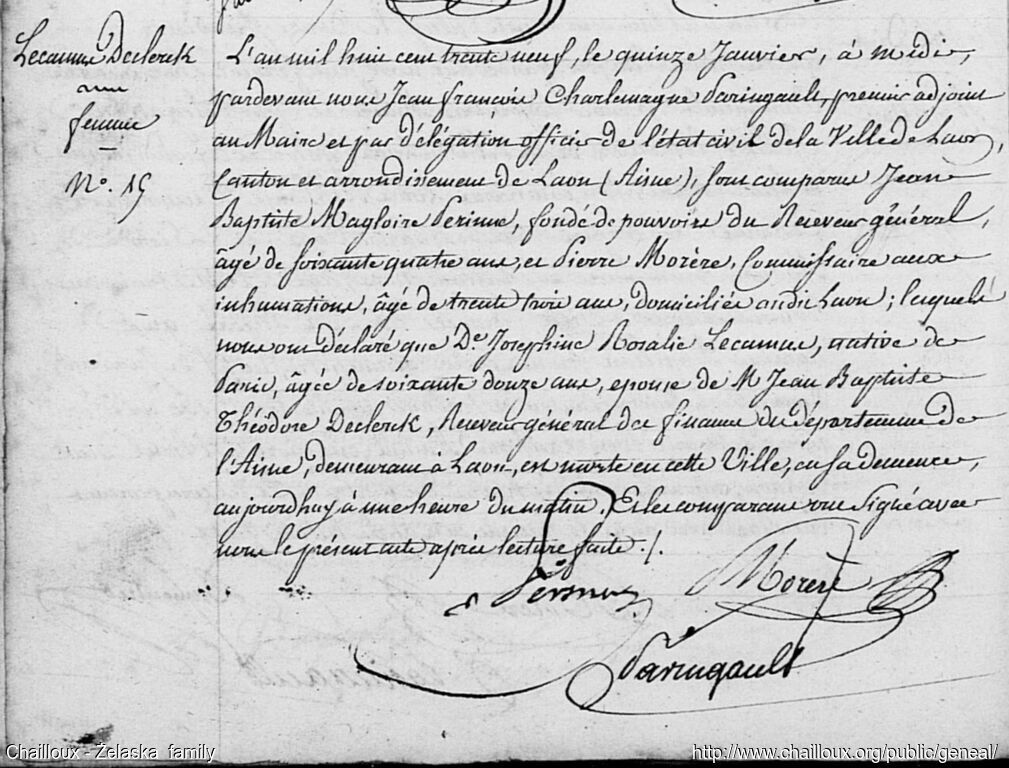 Lecamus Declerck
femme
N°. 15
L'an mil huit cent trente neuf, le quinze Janvier, à midi,
pardevant nous Jean françois Charlemagne Paringault, premier adjoint
au Maire et par délégation officier de l'état civil de la Ville de Laon,
Canton et arrondissement de Laon (Aisne), sont comparus Jean
Baptiste Magloire Perinne, fondé de pouvoirs du Receveur général,
âgé de soixante quatre ans, et Pierre Morère, Commissaire aux
inhumations, âgé de trente trois ans, domiciliés audit Laon; lesquels
nous ont déclaré que De. Josephine Rosalie Lecamus, native de
Paris, âgée de soixante douze ans, epouse de M Jean Baptiste
Théodore Declerck, Receveur général des finances du département de
l'Aisne, demeurant à Laon, est morte en cette Ville, en sa demeure,
aujourdhuy à une heure du matin, Et les comparans ont signé avec
nous le présent acte après lecture faite ./.
Morère
Paringault
Chailloux - Żelaska family
http://www.chailloux.org/public/geneal/